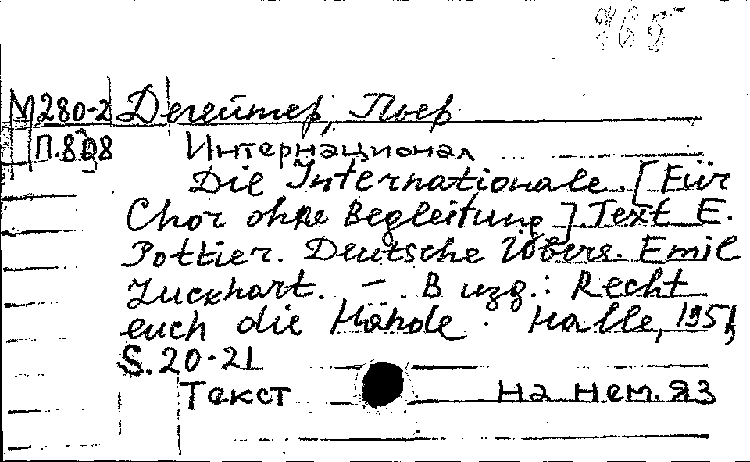 865
М280-2 Дегейтер, Пьер
П.808 Интернационал
Die Internationale. [Für
Chor ohne Begleitung]. Text E.
Pottier. Deutsche Übers. Emil
Luckhart. – В изд.: Recht
euch die Hände. Halle, 1951,
S. 20-21
Текст на нем. яз